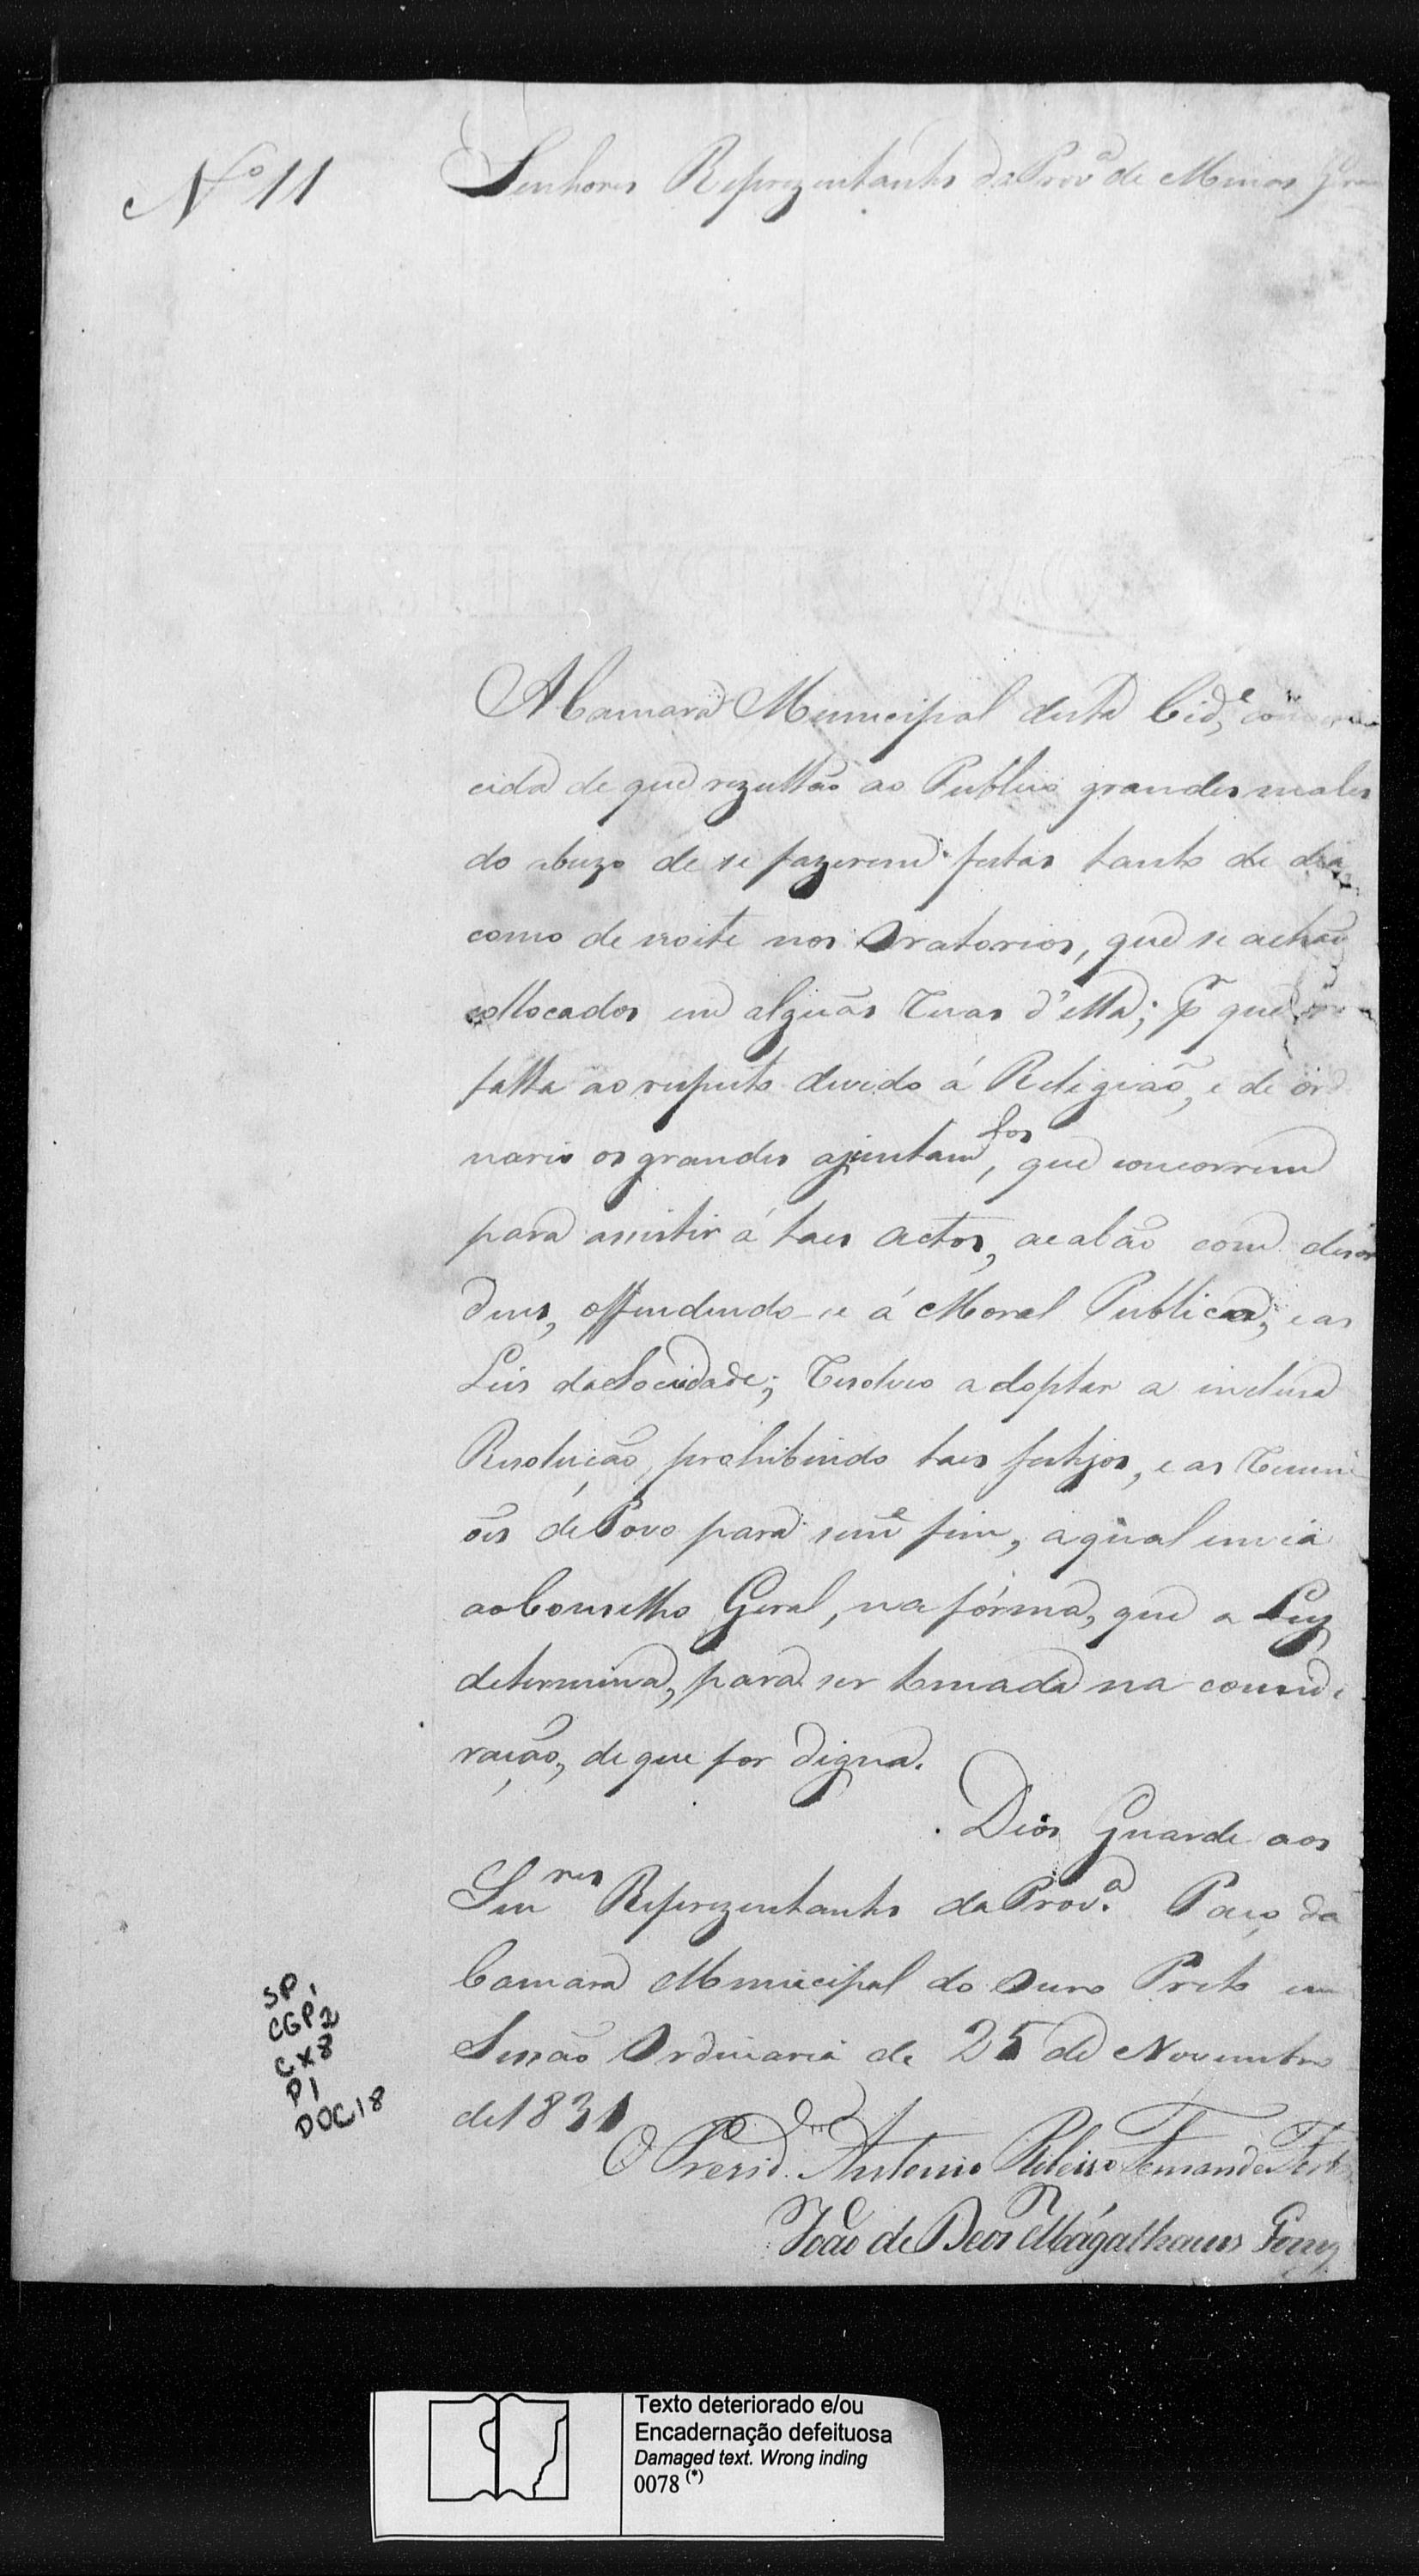 Nº 11
Senhores Reprezentantes da Provª de Minas Geraes
A Camara Municipal desta Cidᵉ,
cida de que rezultão ao Publico grandes males
do abuzo de se fazerem festas tanto de dia
como de noite nos Oratorios, que se achão
collocados em alguãs ruas d'ella; pʳ que
falta ao respeito devido á Religião, e de ordi
nario os grandes ajuntamᵗᵒˢ, que concorrem
para assistir á taes actos, acabão com desor
dens, offendendo-se á Moral Publica, e as
Leis da Sociedade; resolveo adoptar a incluza
Resolução, prohibindo taes festejos, e as reuni
oẽs de Povo para semᵉ fim, a qual envia
ao Conselho Geral, na fórma, que a Ley
determina, para ser tomada na conside
ração, de que for digna.
Deos Guarde aos
Senʳᵉˢ Reprezentantes da Provª. Paço da
Camara Municipal do Ouro Preto em
Sessão Ordinaria de 25 de Novembro
de 1831
O Prezidᵉ Antonio Ribeiro Fernandes
João de Deos Mágalhaens Gomes
SP,
CGP,2
CX8
P1
DOC18
Texto deteriorado e/ou
Encadernação defeituosa
Damaged text. Wrong inding
0078 (*)